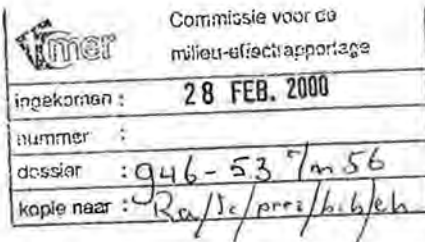 mer
Commissie voor de
milieu-effectrapportage
ingekomen : 28 FEB. 2000
nummer :
dossier : 946-53 t/m 56
kopie naar : Ra/Sc/prez/bib/eh